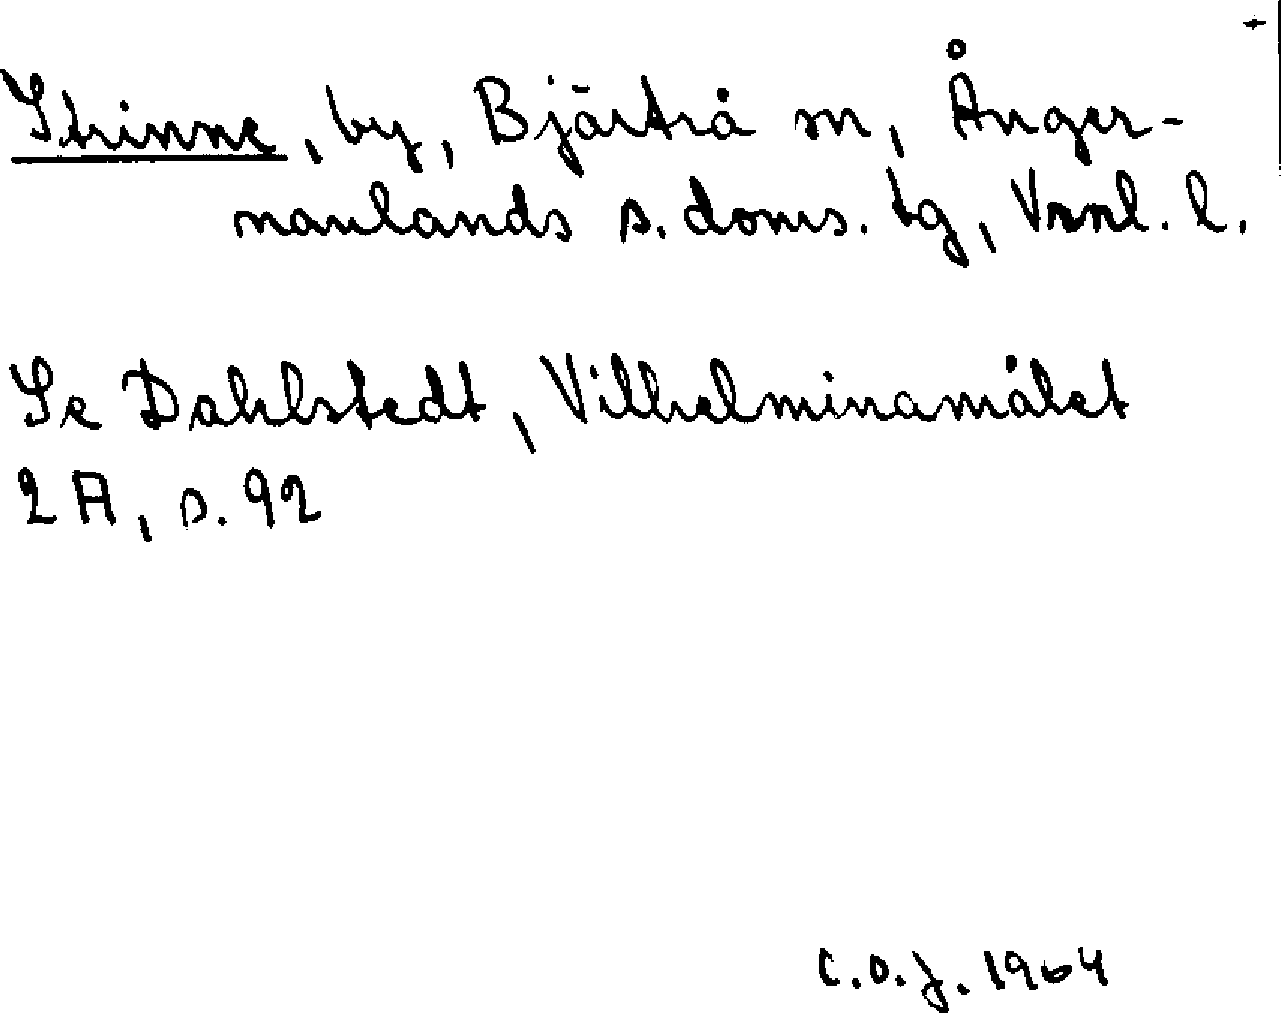 Strinne, by, Bjärtrå sn, Ånger-
manlands s. doms. tg, Vrnl. l.
Se Dahlstedt, Vilhelminamålet
2A, s. 92
C.O.J. 1964